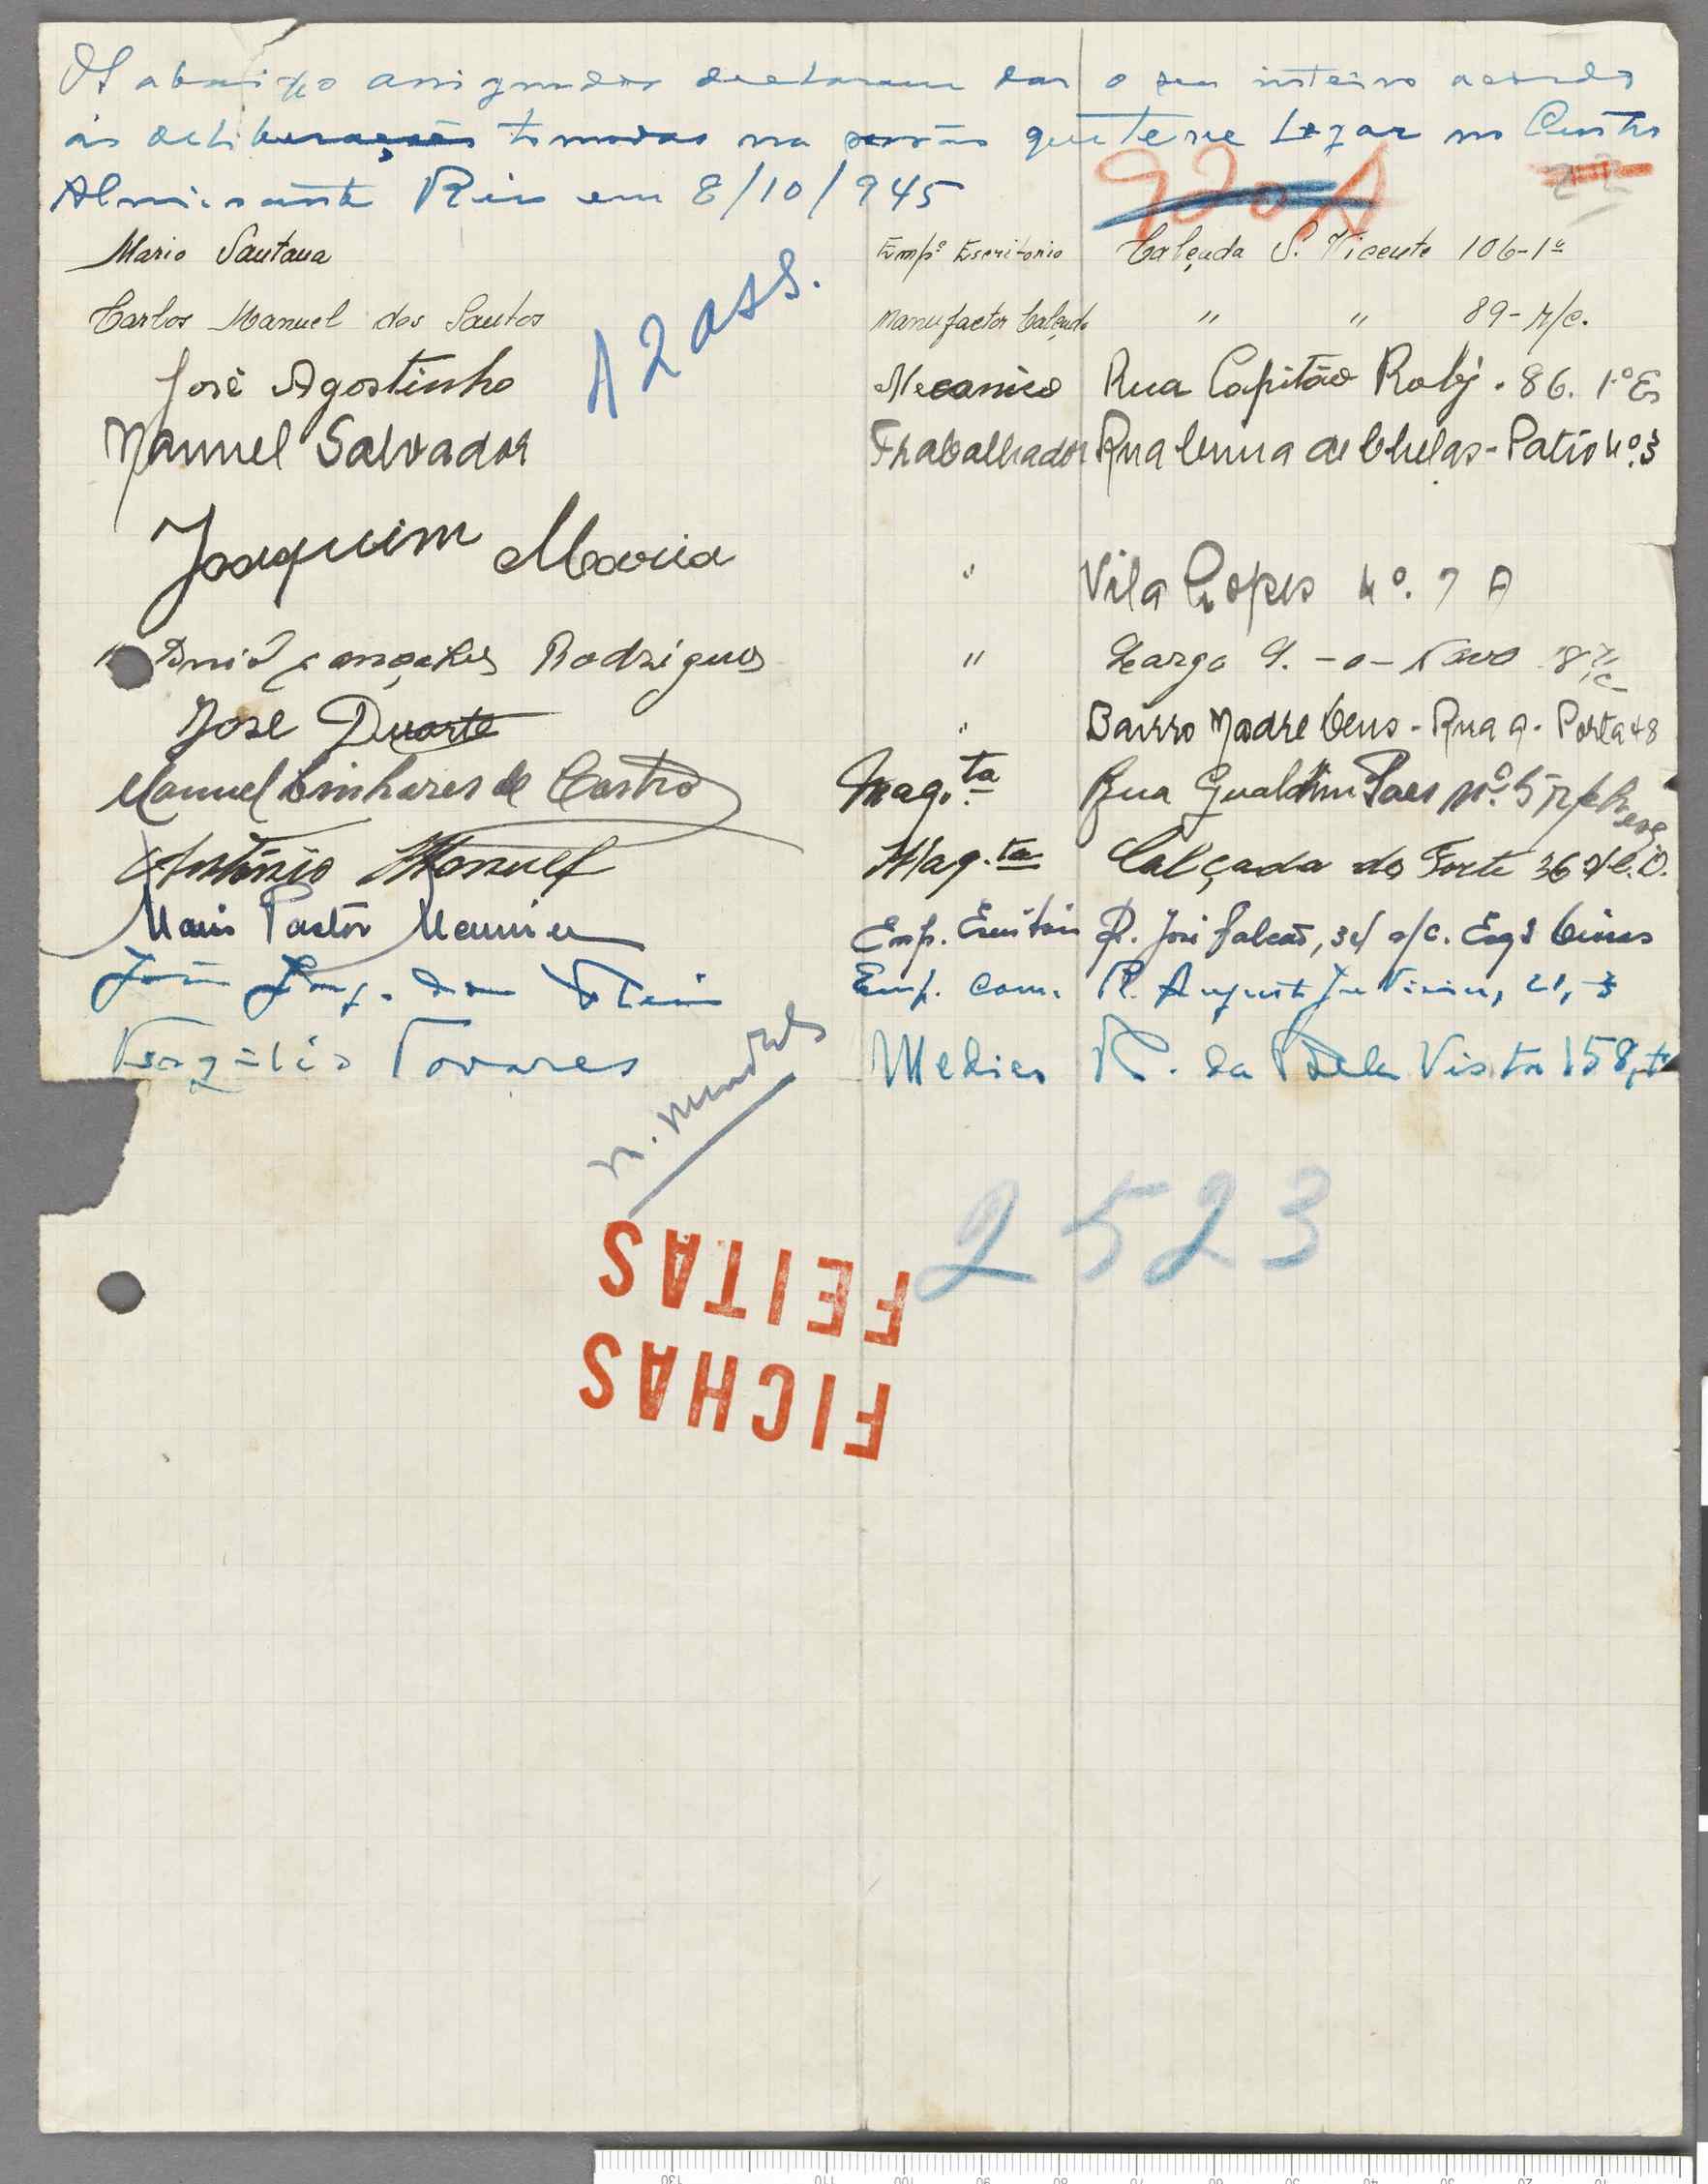 Os abaixo assignados declaram dar o seu inteiro acordo
ás deliberações tomadas na sessão que teve Logar no Centro
Almirante Reis em 8/10/945
920 A
22
Mario Santana Empº Escritorio Calçada S. Vicente 106-1º
Carlos Manuel dos Santos Manufactor Calçado " " 89-r/c.
12 ass.
José Agostinho Mecanico Rua Capitão Roby. 86. 1.º Es
Manuel Salvador Trabalhador Rua Cima de Chelas-Patio nº.3
Joaquim Maria " Vila Lopes nº. 7 A
Gonçalves Rodrigues " Largo
José Duarte " Bairro Madre Deus-Rua 9-Porta 48
Manuel Linhares de Castro Mag.ta Rua Gualdim Paes nº. 5 r/ch esq
António Manuel Mag.ta Calçada do Forte 36 C.D.
Mario Pastor Emp. Escritório R. José Falcão, 34 r/c. Esqº
João dos Emp. Com. R. 21, 3
Virgílio Tavares Medico R. da Bela Vista 158,
n. mandados
2523
FEITAS
FICHAS
130 110 100 90 80 70 60 50 40 30 20 10